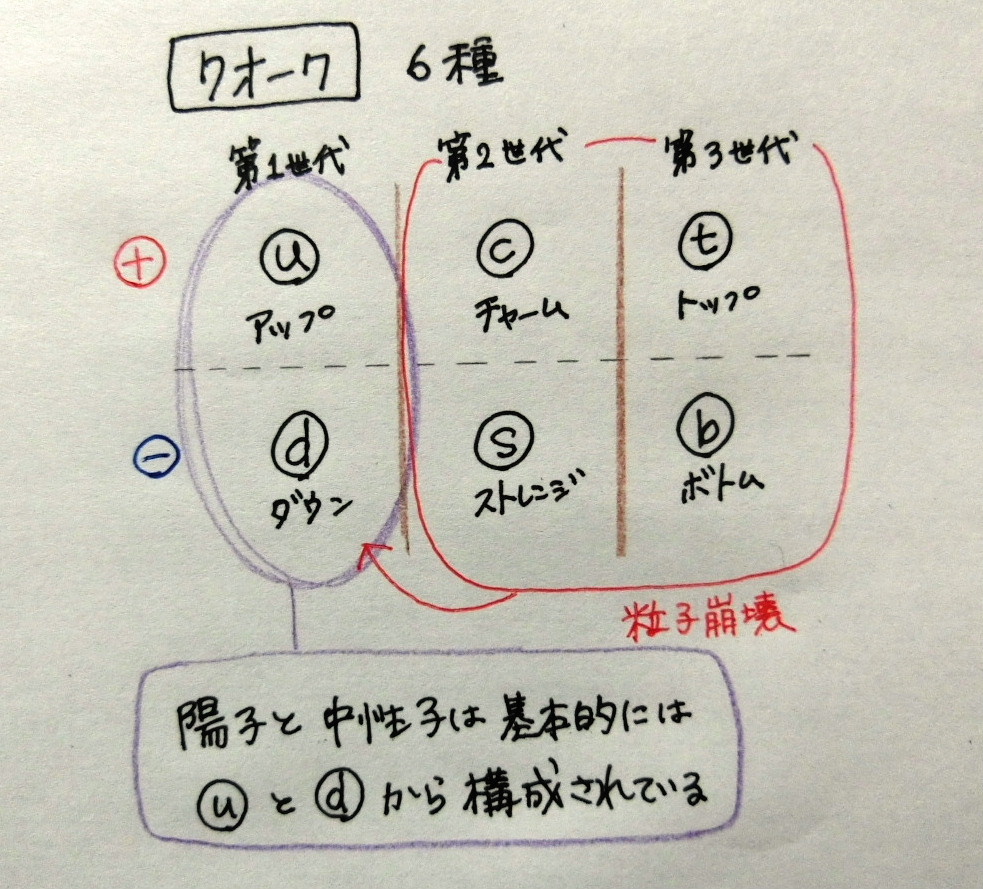 クオーク 6種
第1世代 第2世代 第3世代
+ u c t
アップ チャーム トップ
- d s b
ダウン ストレンジ ボトム
粒子崩壊
陽子と中性子は基本的には
uとdから構成されている